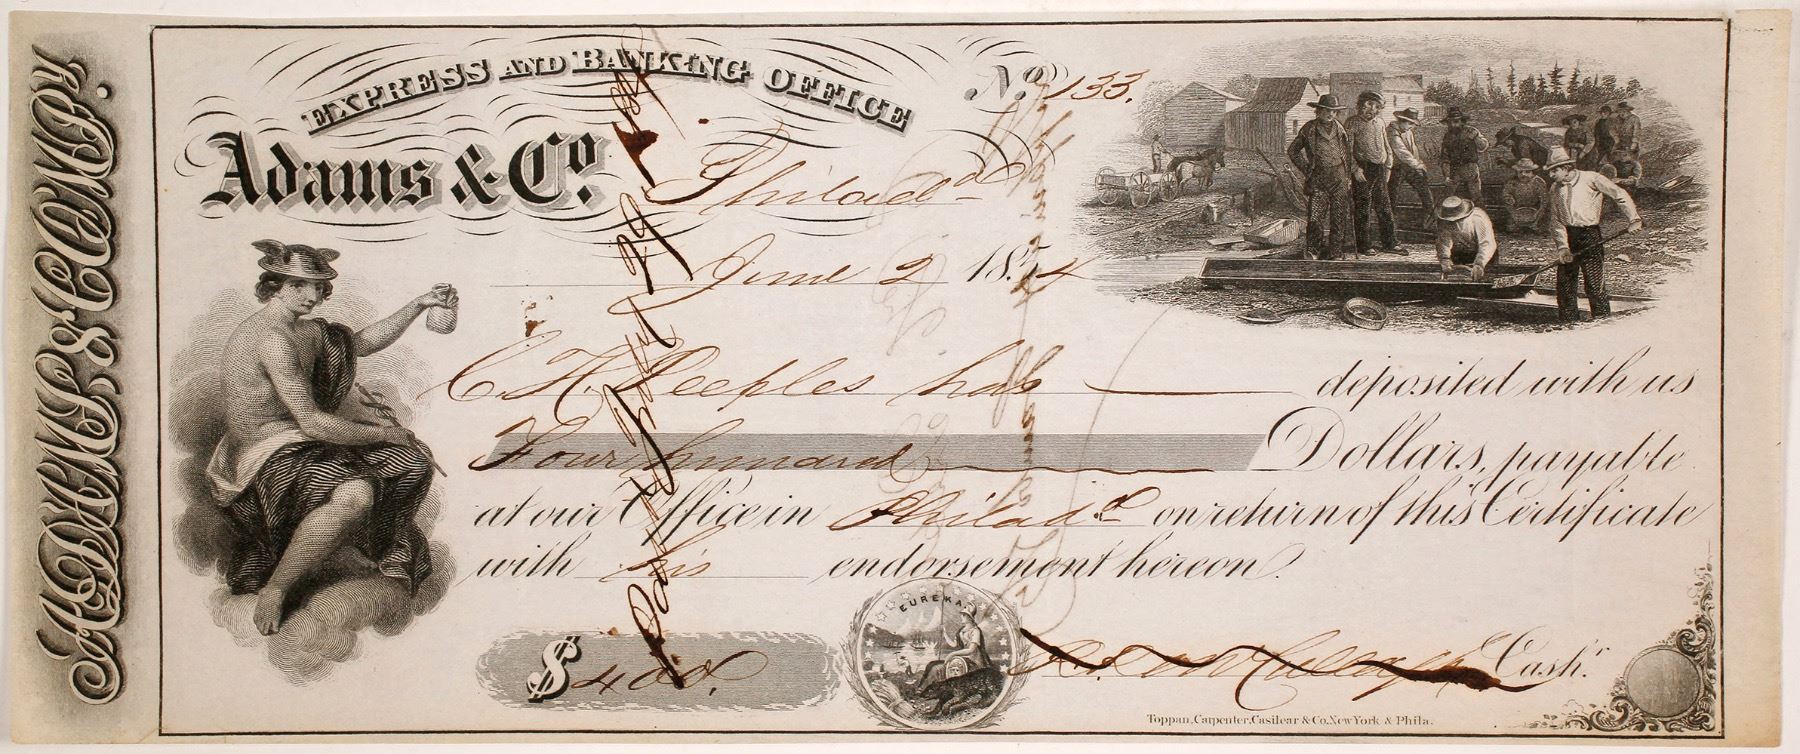 ADAMS & COMPY.
EXPRESS AND BANKING OFFICE
Adams & Co.
No. 133.
Philada
June 2 1854
C. H. Peeples has deposited with us
Four hundred Dollars, payable
at our Office in Philada on return of this Certificate
with his endorsement hereon.
$ 400.
EUREKA
Cashr.
Toppan, Carpenter, Casilear & Co. New York & Phila.